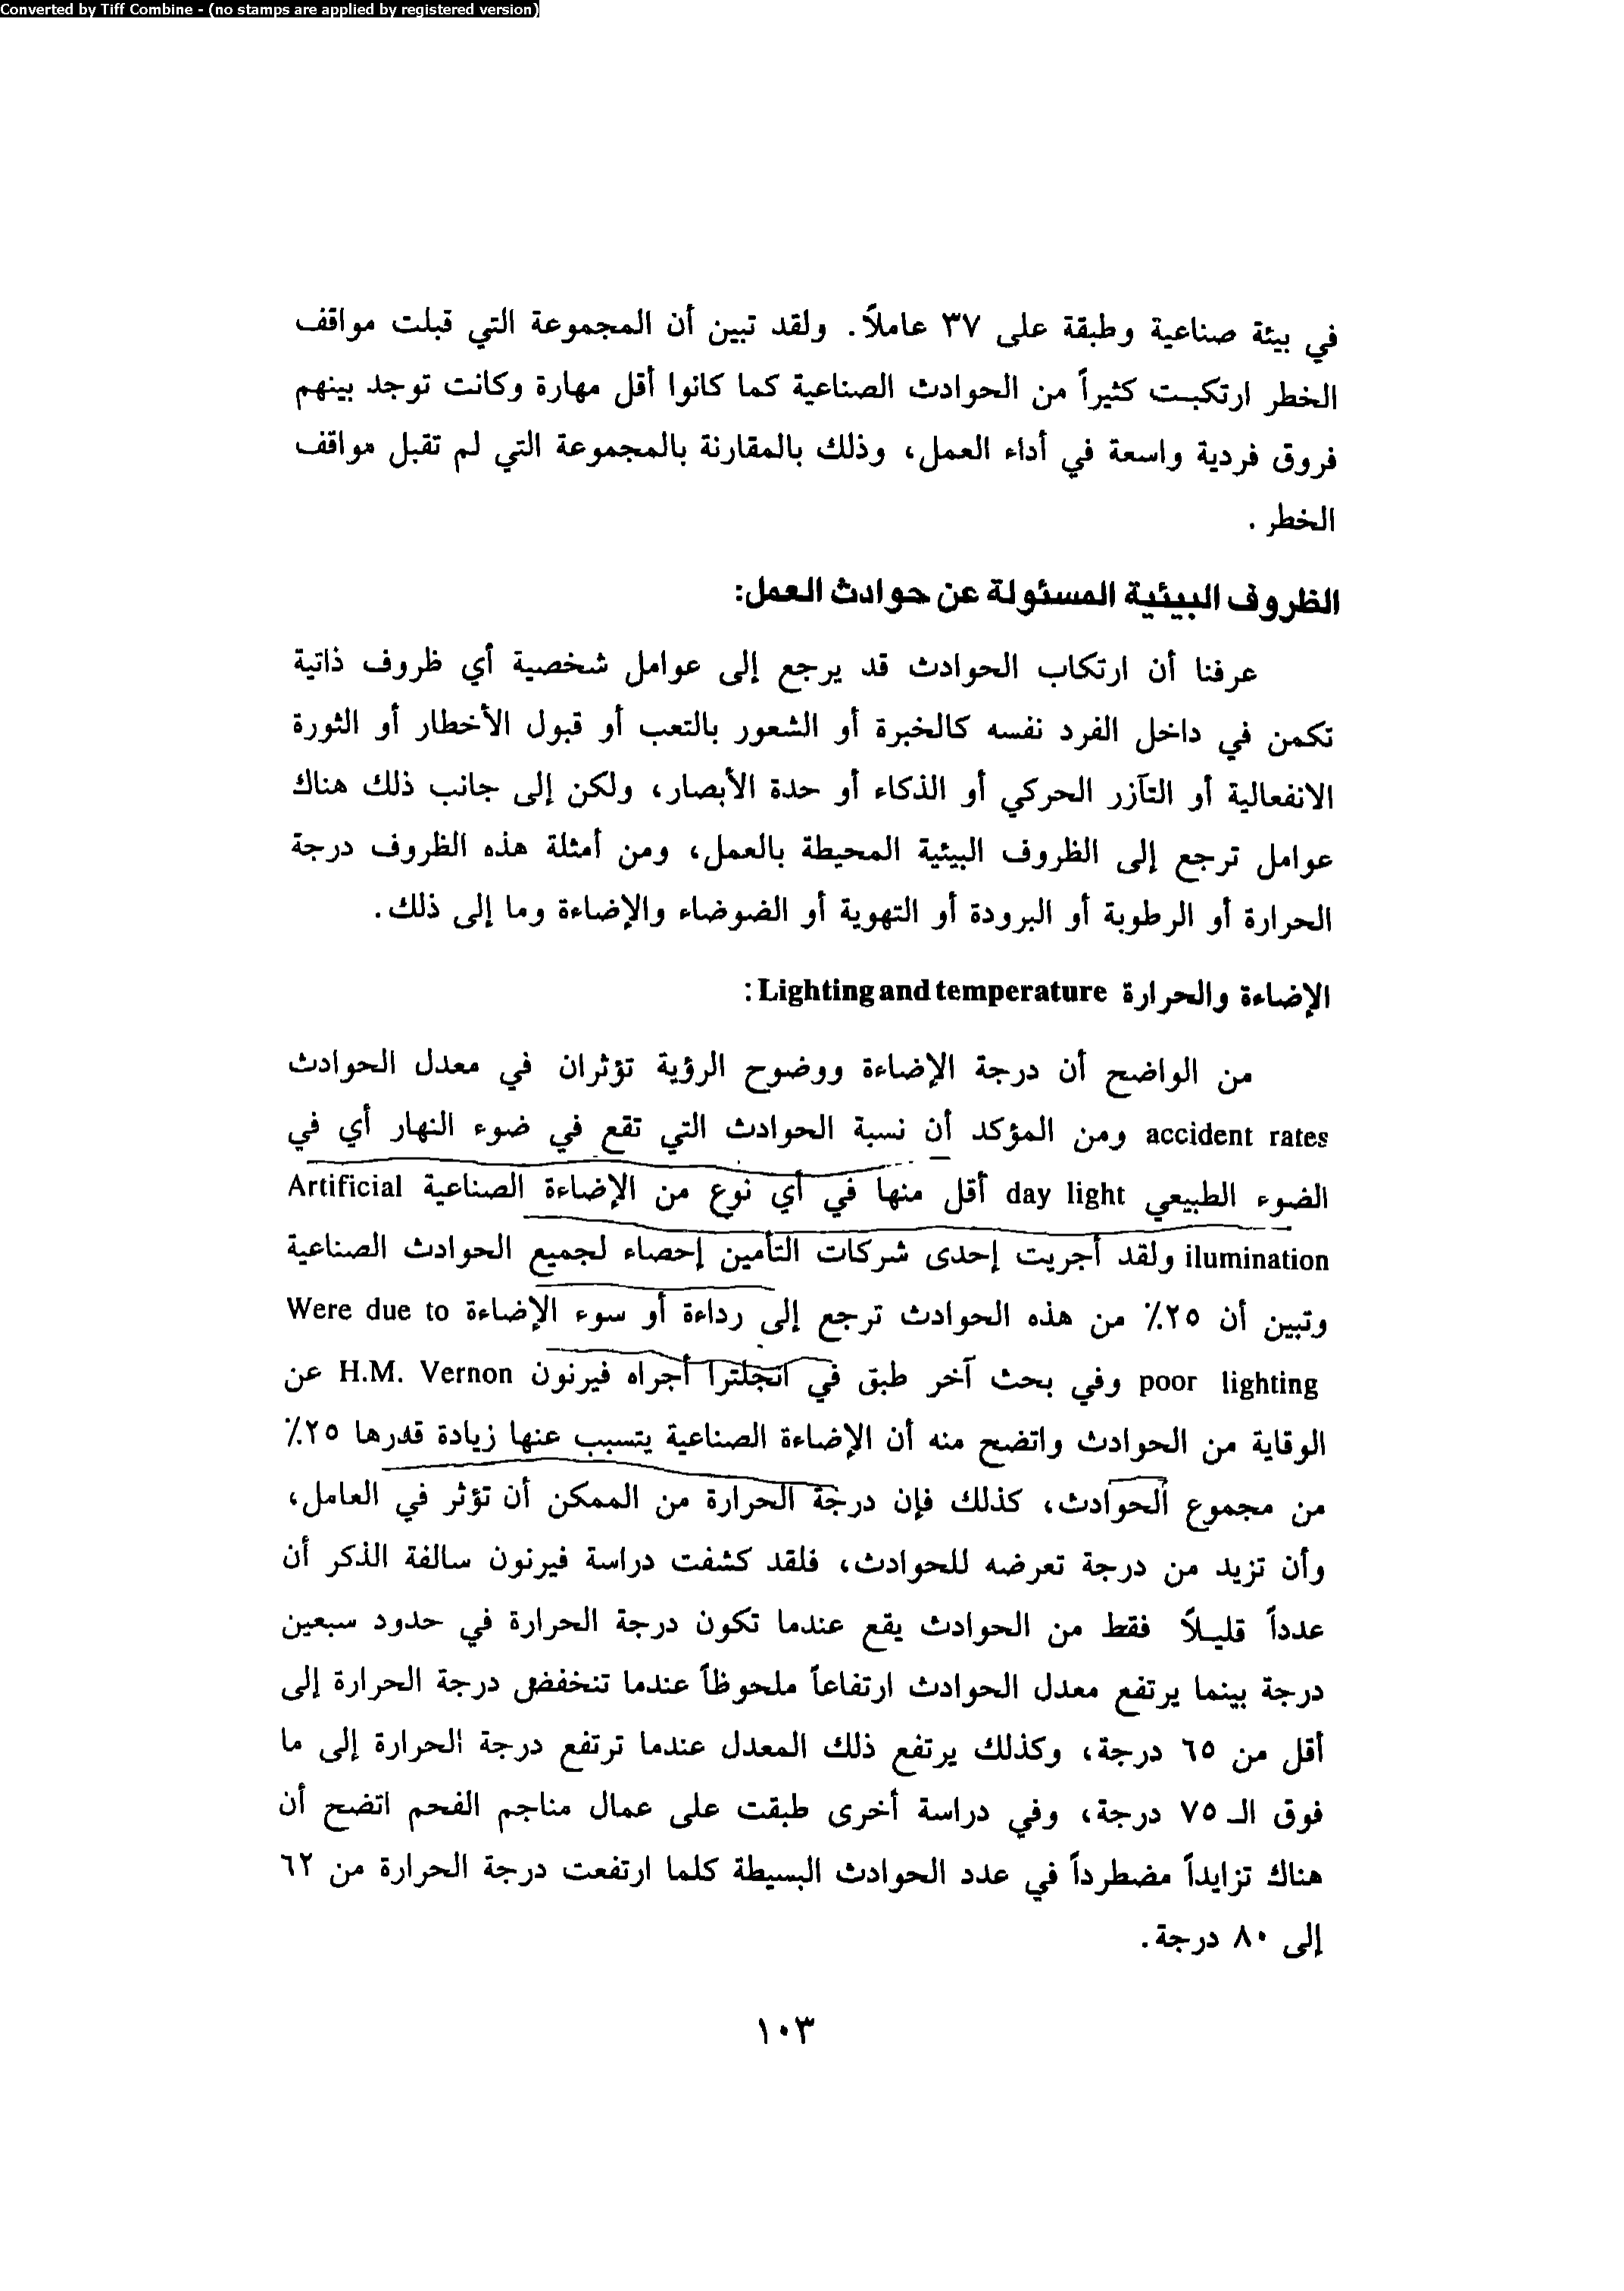 Converted by Tiff Combine - (no stamps are applied by registered version)
في بيئة صناعية وطبقة على ٣٧ عاملاً. ولقد تبين أن المجموعة التي قبلت مواقف
الخطر ارتكبت كثيراً من الحوادث الصناعية كما كانوا أقل مهارة وكانت توجد بينهم
فروق فردية واسعة في أداء العمل، وذلك بالمقارنة بالمجموعة التي لم تقبل مواقف
الخطر.
الظروف البيئية المسئولة عن حوادث العمل:
عرفنا أن ارتكاب الحوادث قد يرجع إلى عوامل شخصية أي ظروف ذاتية
تكمن في داخل الفرد نفسه كالخبرة أو الشعور بالتعب أو قبول الأخطار أو الثورة
الانفعالية أو التآزر الحركي أو الذكاء أو حدة الأبصار، ولكن إلى جانب ذلك هناك
عوامل ترجع إلى الظروف البيئية المحيطة بالعمل، ومن أمثلة هذه الظروف درجة
الحرارة أو الرطوبة أو البرودة أو التهوية أو الضوضاء والإضاءة وما إلى ذلك.
الإضاءة والحرارة Lighting and temperature:
من الواضح أن درجة الإضاءة ووضوح الرؤية تؤثران في معدل الحوادث
accident rates ومن المؤكد أن نسبة الحوادث التي تقع في ضوء النهار أي في
الضوء الطبيعي day light أقل منها في أي نوع من الإضاءة الصناعية Artificial
ilumination ولقد أجريت إحدى شركات التأمين إحصاء لجميع الحوادث الصناعية
وتبين أن ٢٥٪ من هذه الحوادث ترجع إلى رداءة أو سوء الإضاءة Were due to
poor lighting وفي بحث آخر طبق في انجلترا أجراه فيرنون H.M. Vernon عن
الوقاية من الحوادث واتضح منه أن الإضاءة الصناعية يتسبب عنها زيادة قدرها ٢٥٪
من مجموع الحوادث، كذلك فإن درجة الحرارة من الممكن أن تؤثر في العامل،
وأن تزيد من درجة تعرضه للحوادث، فلقد كشفت دراسة فيرنون سالفة الذكر أن
عدداً قليلاً فقط من الحوادث يقع عندما تكون درجة الحرارة في حدود سبعين
درجة بينما يرتفع معدل الحوادث ارتفاعاً ملحوظاً عندما تنخفض درجة الحرارة إلى
أقل من ٦٥ درجة، وكذلك يرتفع ذلك المعدل عندما ترتفع درجة الحرارة إلى ما
فوق الـ ٧٥ درجة، وفي دراسة أخرى طبقت على عمال مناجم الفحم اتضح أن
هناك تزايداً مضطرداً في عدد الحوادث البسيطة كلما ارتفعت درجة الحرارة من ٦٢
إلى ٨٠ درجة.
١٠٣